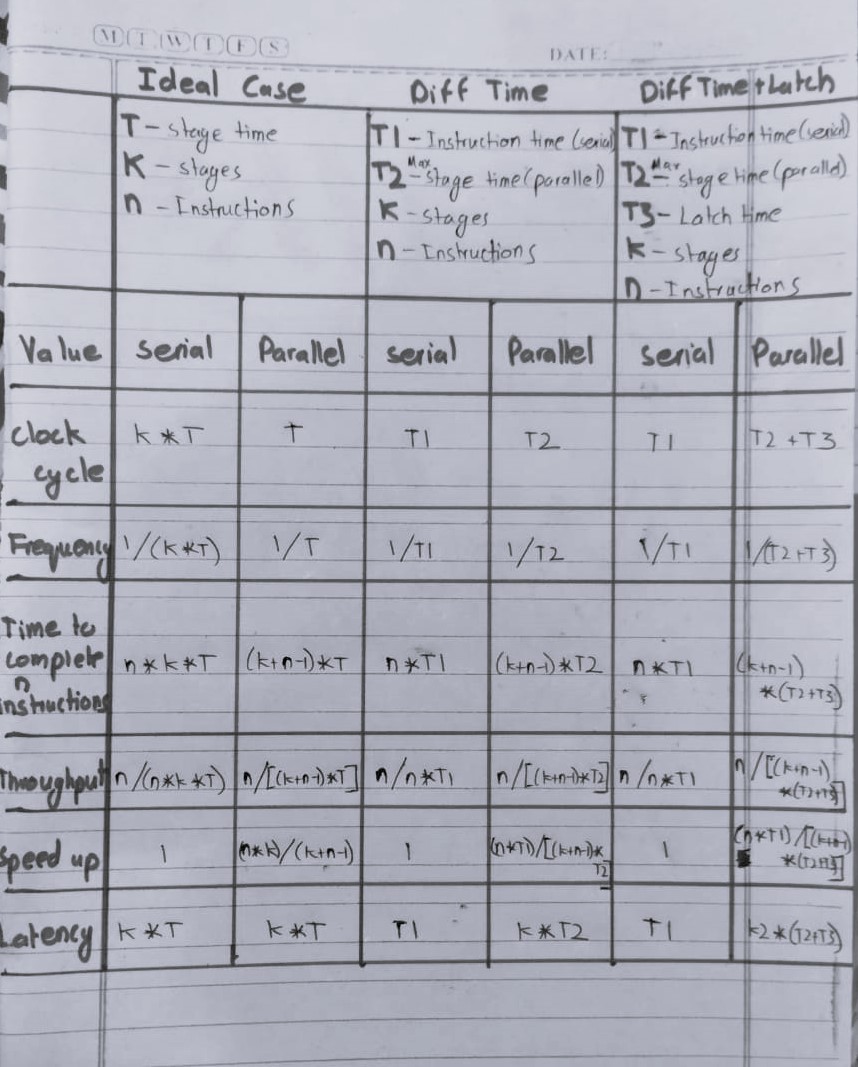 M T W T F S
DATE:
Ideal Case Diff Time Diff Time + Latch
T - stage time
K - stages
n - Instructions
T1 - Instruction time (serial)
T2 - Max stage time (parallel)
K - stages
n - Instructions
T1 - Instruction time (serial)
T2 - Max stage time (parallel)
T3 - Latch time
k - stages
n - Instructions
Value serial Parallel serial Parallel serial Parallel
Clock cycle k*T T T1 T2 T1 T2+T3
Frequency 1/(k*T) 1/T 1/T1 1/T2 1/T1 1/(T2+T3)
Time to complete n instructions n*k*T (k+n-1)*T n*T1 (k+n-1)*T2 n*T1 (k+n-1)*(T2+T3)
Throughput n/(n*k*T) n/[(k+n-1)*T] n/n*T1 n/[(k+n-1)*T2] n/n*T1 n/[(k+n-1)*(T2+T3)]
Speed up 1 (n*k)/(k+n-1) 1 (n*T1)/[(k+n-1)*T2] 1 (n*T1)/[(k+n-1)*(T2+T3)]
Latency k*T k*T T1 k*T2 T1 k2*(T2+T3)